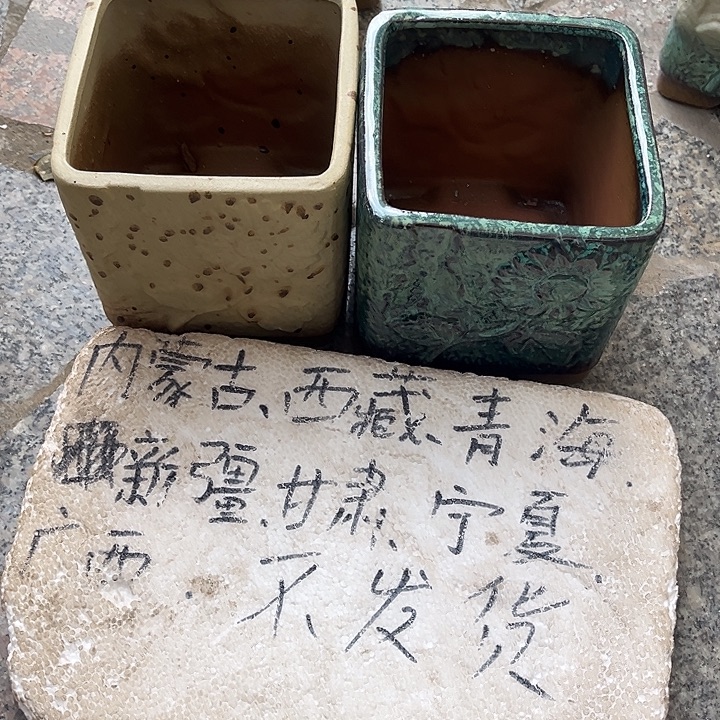 内蒙古、西藏、青海.
新疆.甘肃、宁夏.
广西. 不发货